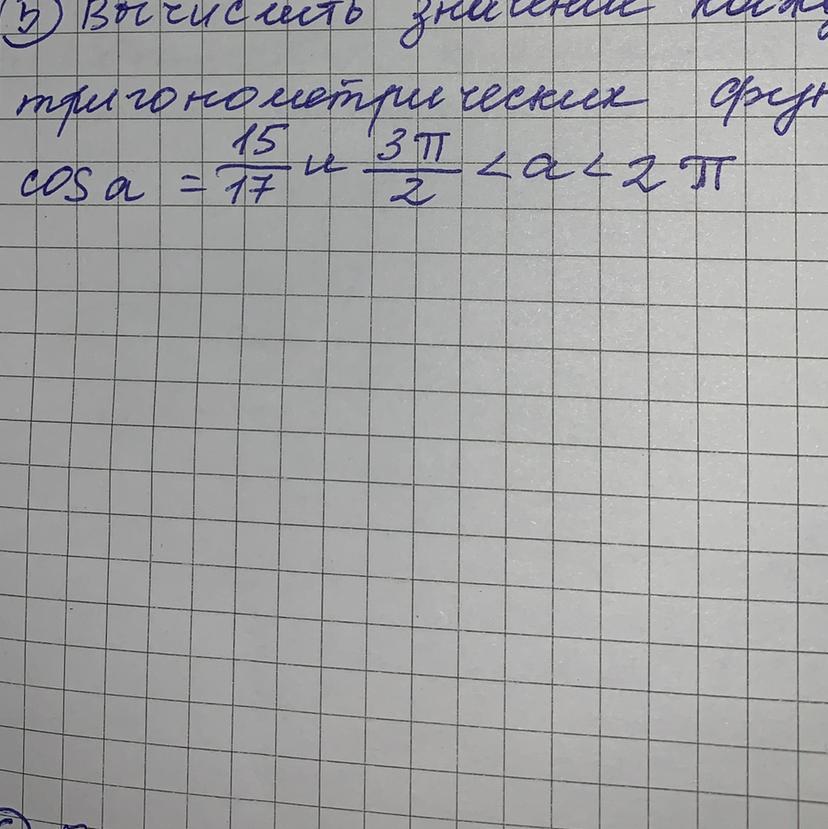 5) Вычислить значение
тригонометрических фун
cos a = 15/17 и 3π/2 < a < 2π